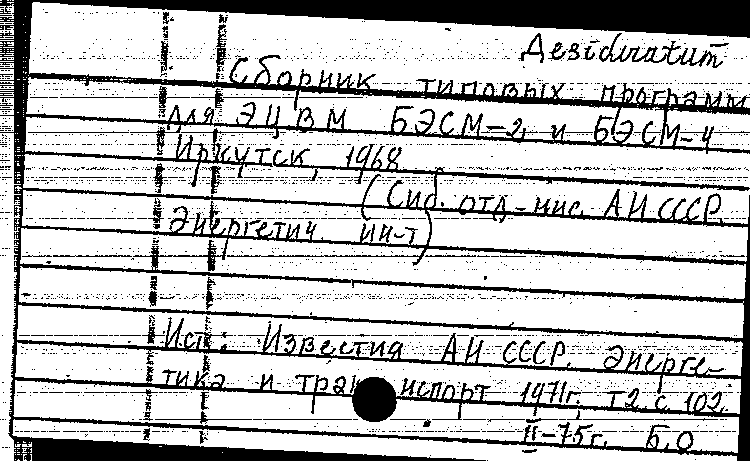 Desideratum
Сборник типовых программ
для ЭЦВМ БЭСМ-2 и БЭСМ-4
Иркутск, 1968
(Сиб. отд-ние. АН СССР.
Энергетич. ин-т)
Ист.: Известия АН СССР. Энерге-
тика и транспорт 1971г, т2. с. 102.
II-75г. Б.О